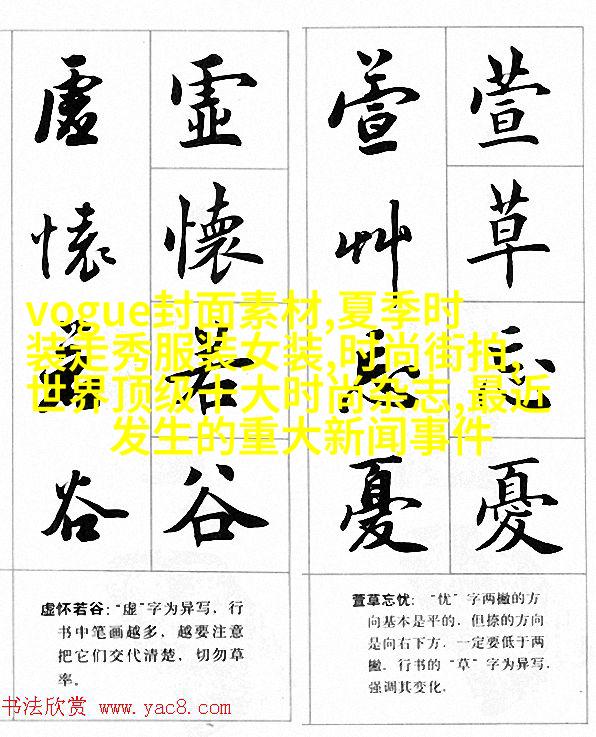 虛懷若谷
虛懷若谷
萱艸忘憂
萱草忘憂
vogue封面素材,夏季时
装走秀服装女装,时尚街拍,
世界顶级十大时尚杂志,最近
发生的重大新闻事件
虚怀若谷：“虚”字为异写，行
书中笔画越多，越要注意
把它们交代清楚，切勿草
率。
萱草忘忧：“忧”字两撇的方
向基本是平的，但捺的方向
是向右下方，一定要低于两
撇。行书的“草”字为异写，
强调其变化。
书法欣赏 www.yac8.com